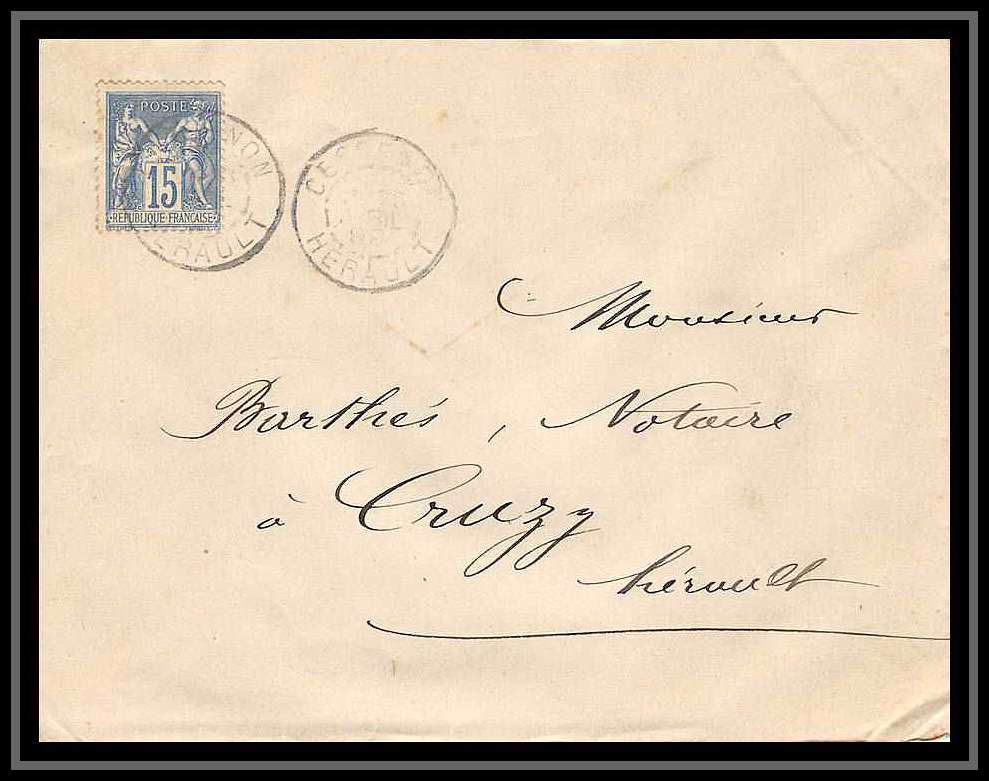 POSTE
15
RÉPUBLIQUE FRANÇAISE
HÉRAULT
Monsieur
Barthés, Notaire
à Cruzy
hérault